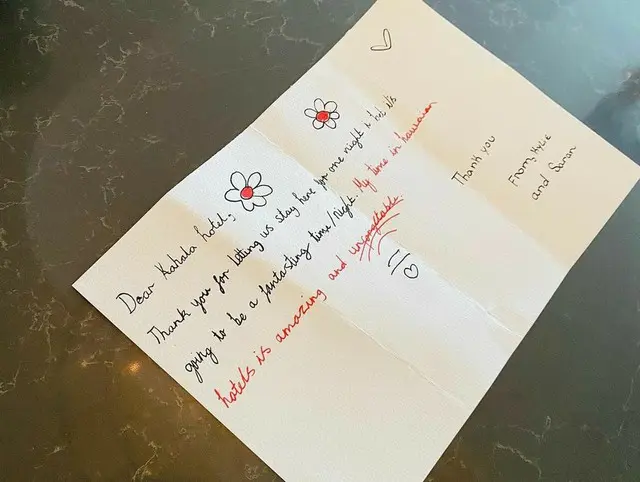 Dear Kahala hotel,
Thank you for letting us stay here for one night & bet it's
going to be a fantasting time/night. My time in hawaiian
hotels is amazing and unforgetable.
Thank you
From, Kylie
and Saran